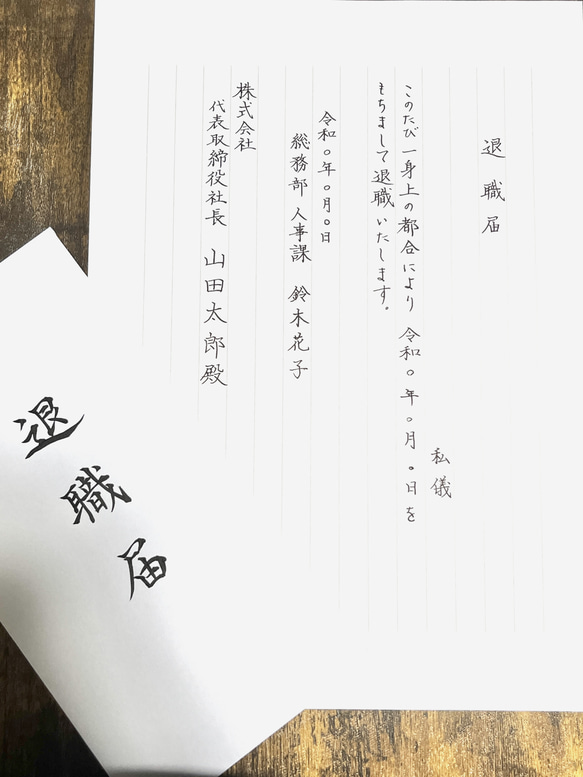 退職届
私儀
このたび一身上の都合により 令和〇年〇月〇日を
もちまして退職いたします。
令和〇年〇月〇日
総務部 人事課 鈴木花子
株式会社
代表取締役社長 山田太郎殿
退職届